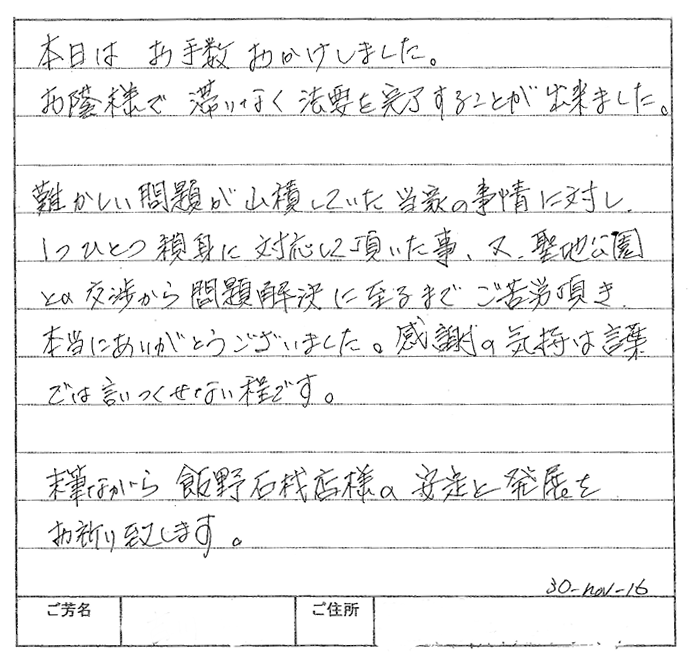 本日は お手数 おかけしました。
お陰様で 滞りなく 法要を完了することが 出来ました。
難かしい問題が山積していた当家の事情に対し、
1つひとつ親身に対応して頂いた事、又、聖地公園
との交渉から問題解決に至るまでご苦労頂き、
本当にありがとうございました。感謝の気持は言葉
では言いつくせない程です。
末筆ながら 飯野石材店様の 安定と発展を
お祈り致します。
30-nov-16
ご芳名 ご住所